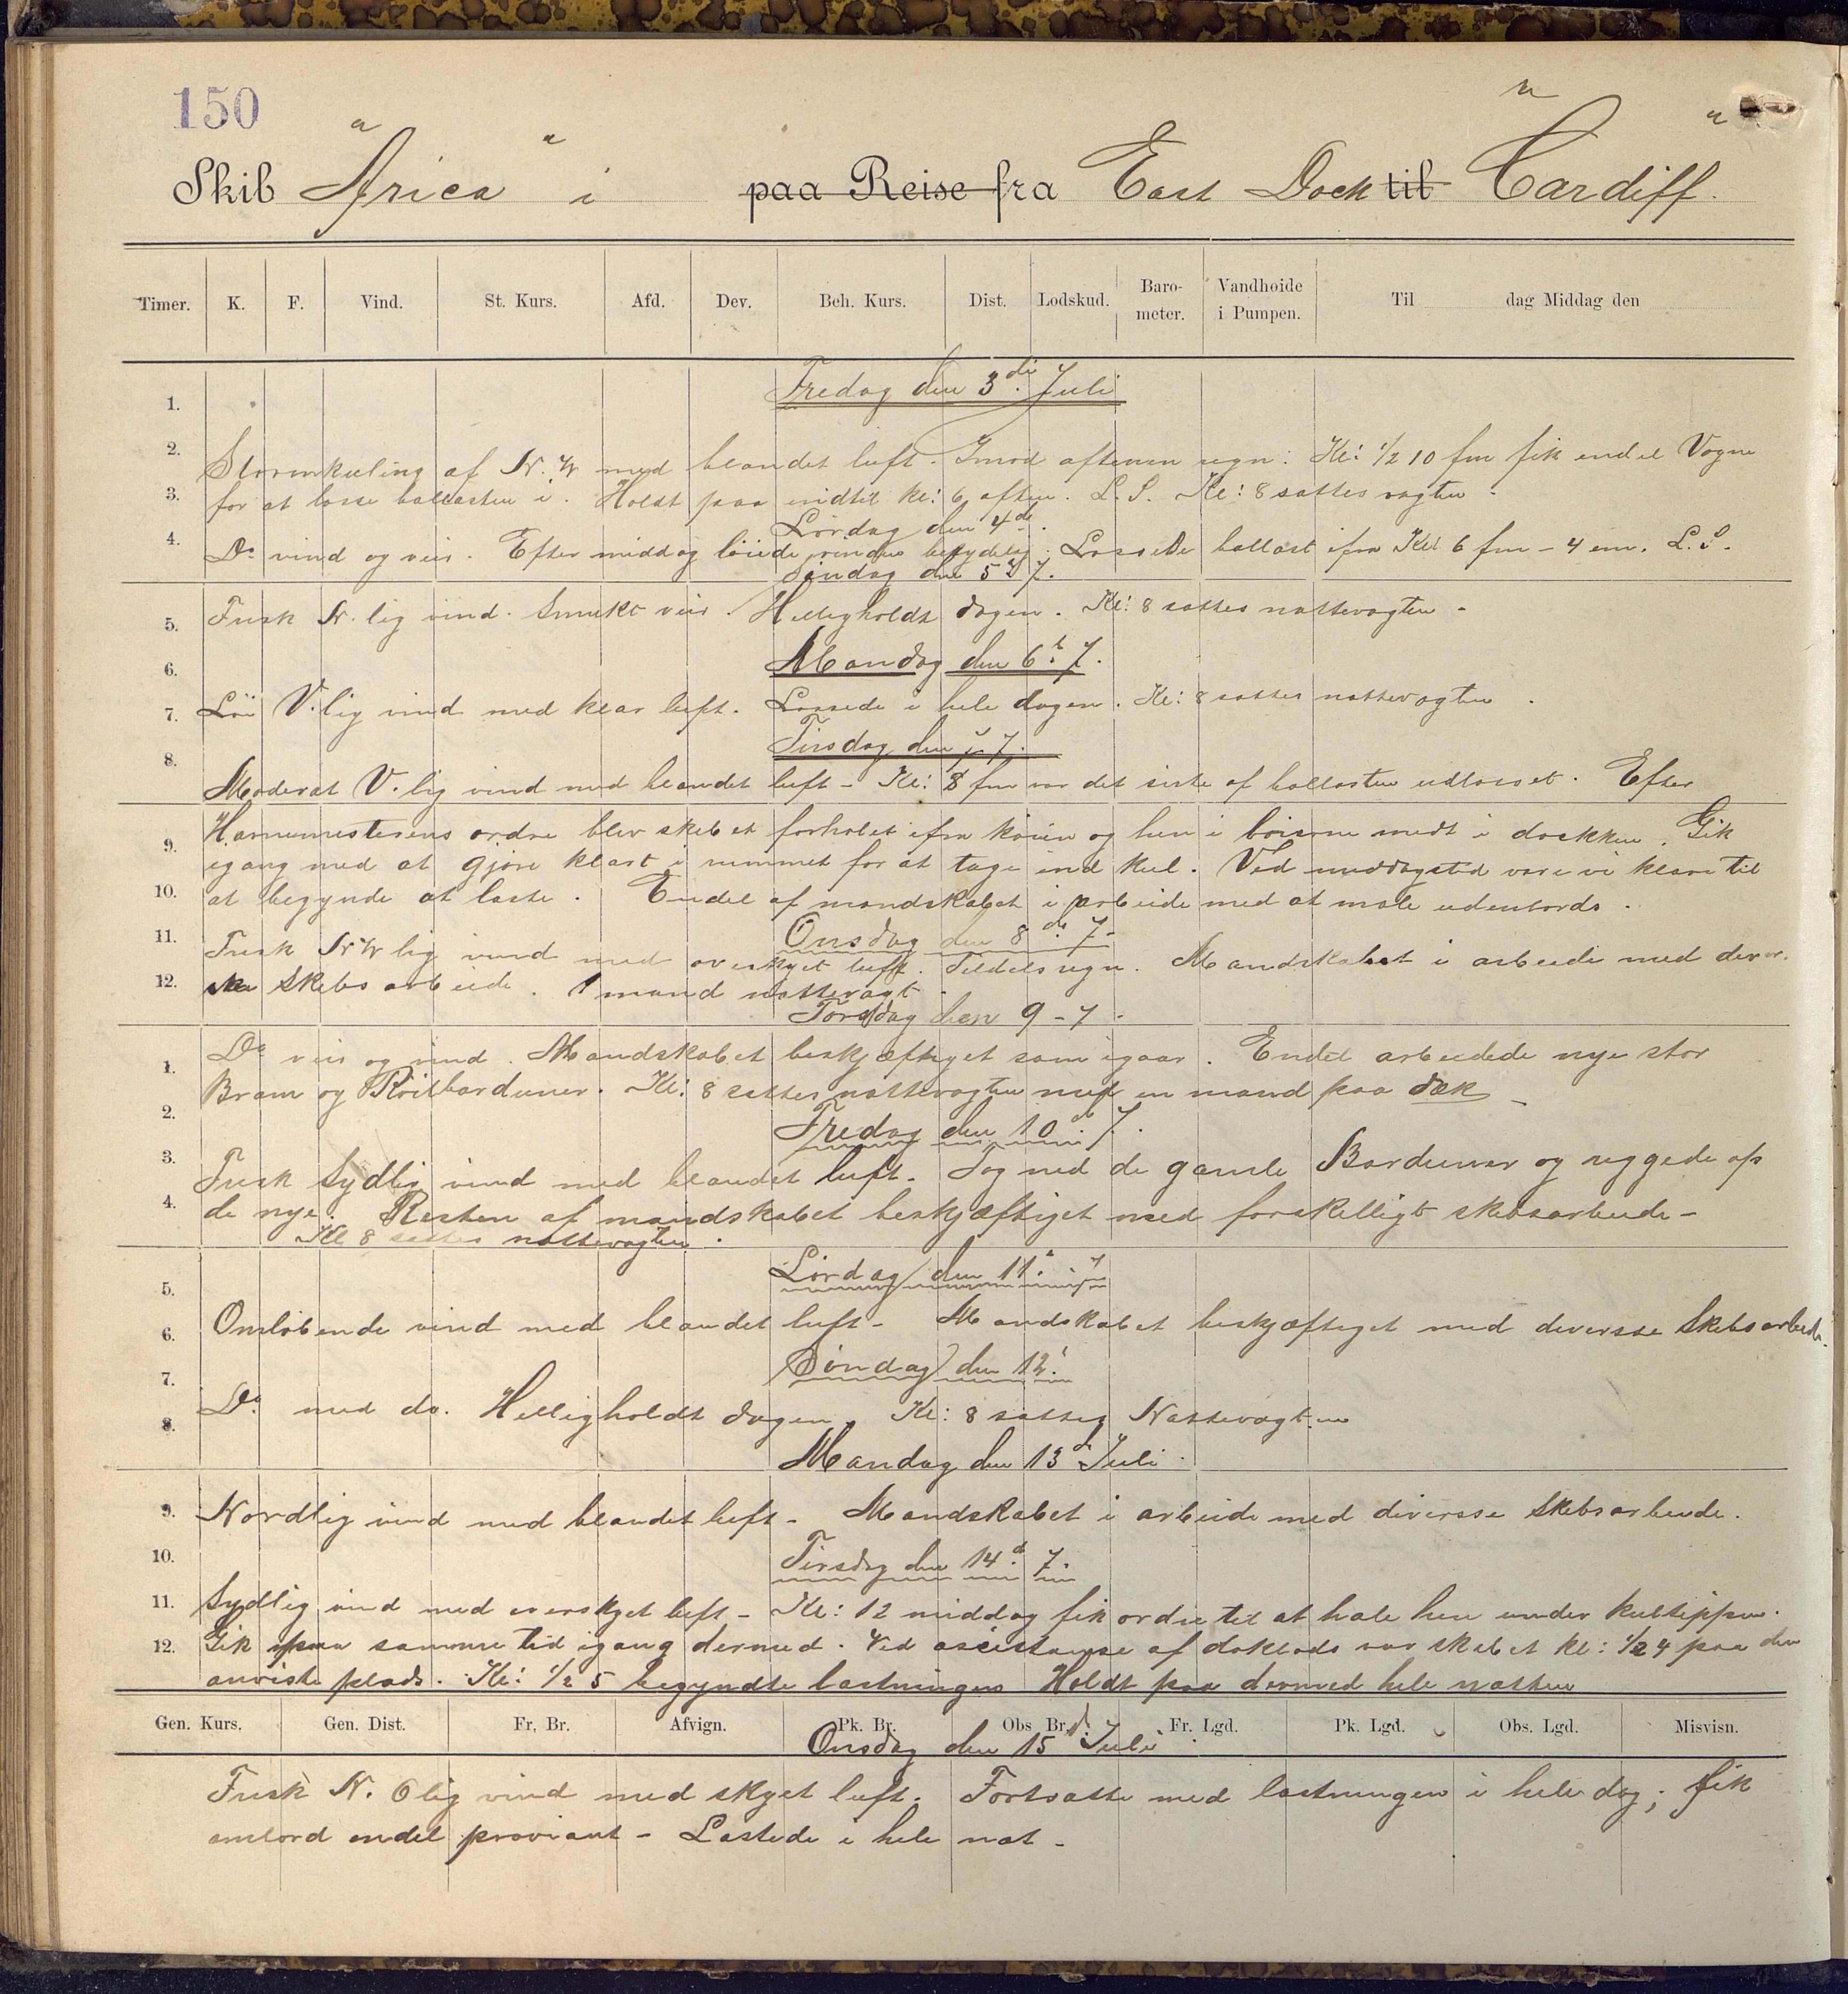 150
Skib "Arica" i paa Reise fra East Dock til "Cardiff".
Timer. K. F. Vind. St. Kurs. Afd. Dev. Beh. Kurs. Dist. Lodskud. Barometer. Vandhoide i Pumpen. Til dag Middag den
1. Fredag den 3die Juli
2. Stormkuling af N.W med blandet luft. Imod aftenen regn. Kl: 1/2 10 fm fik endel Vogne
3. for at losse ballasten i. Holdt paa indtil kl: 6 aften. L. S. Kl: 8 sattes vagten.
Lørdag den 4de.
4. Do vind og veir. Efter middag løiede vinden betydelig. Lossede ballast ifra Kl 6 fm - 4 em. L. S.
Søndag den 5 7.
5. Frisk N. lig vind. Smukt veir. Helligholdt dagen. Kl: 8 sattes nattevagten.
6. Mandag den 6te 7.
7. Løi V. lig vind med klar luft. Lossede i hele dagen. Kl: 8 sattes nattevagten.
Tirsdag den 7. 7.
8.
Moderat V. lig vind med blandet luft - Kl: 8 fm var det siste af ballasten udlosset. Efter
9. Havnemesterens ordre blev skibet forhalet ifra kaien og hen i boierne midt i dockken. Gik
igang med at gjøre klart i rummet for at tage ind kul. Ved middagstid vare vi klare til
10. at begynde at laste. Endel af mandskabet i arbeide med at male udenbords.
11. Onsdag den 8de 7.
Frisk N W lig vind med overskyet luft. Tildels regn. Mandskabet i arbeide med diver.
12. ske Skibs arbeide. 1 mand nattevagt.
Torsdag den 9 - 7.
1. Do veir og vind. Mandskabet beskjæftiget som igaar. Endel arbeidede nye stor
Bram og Røilbarduner. Kl: 8 sattes nattevagten med en mand paa dæk
2. Fredag den 10de 7.
3. Frisk Sydlig vind med blandet luft. Tog ned de gamle Barduner og riggede op
4. de nye. Resten af mandskabet beskjæftiget med forskelligt skibsarbeide -
Kl 8 sattes nattevagten.
5. Lørdag den 11te 7
6. Omløbende vind med blandet luft - Mandskabet beskjæftiget med diversse Skibsarbeide.
7. Søndag den 12.
8. Do med do. Helligholdt dagen. Kl: 8 sattes Nattevagten
Mandag den 13de Juli.
9. Nordlig vind med blandet luft - Mandskabet i arbeide med diversse Skibsarbeide.
10. Tirsdag den 14de. 7.
11. Sydlig vind med overskyet luft - Kl: 12 middag fik ordre til at hale hen under kultippen.
12. Gik paa samme tid igang dermed. Ved assistanse af doklods var skibet kl: 1/2 4 paa den
anviste plads. Kl: 1/2 5 begyndte lastningen Holdt paa dermed hele natten
Gen. Kurs. Gen. Dist. Fr. Br. Afvign. Pk. Br. Obs Br. Fr. Lgd. Pk. Lgd. Obs. Lgd. Misvisn.
Onsdag den 15de Juli
Frisk N. O lig vind med skyet luft. Fortsatte med lastningen i hele dag; fik
ombord endel proviant - Lastede i hele nat -